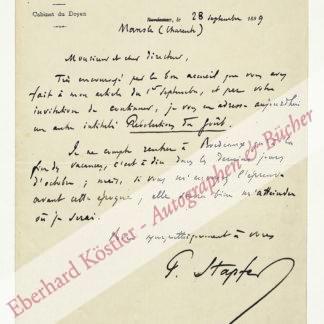 Cabinet du Doyen
le 28 septembre 1899
Mansle (Charente)
Monsieur et cher directeur,
Très encouragé par le bon accueil que vous avez
fait à mon article du 1er septembre, et par votre
invitation de continuer, je vous en adresse aujourd'hui
un autre intitulé Révolutions du goût.
Je ne compte rentrer à Bordeaux qu'à la
fin des vacances, c'est à dire dans les derniers jours
d'octobre; mais, si vous m'envoyez l'épreuve
avant cette époque, elle m'atteindra
où je serai.
sympathiquement à vous
P. Stapfer
Eberhard Köstler - Autographen & Bücher